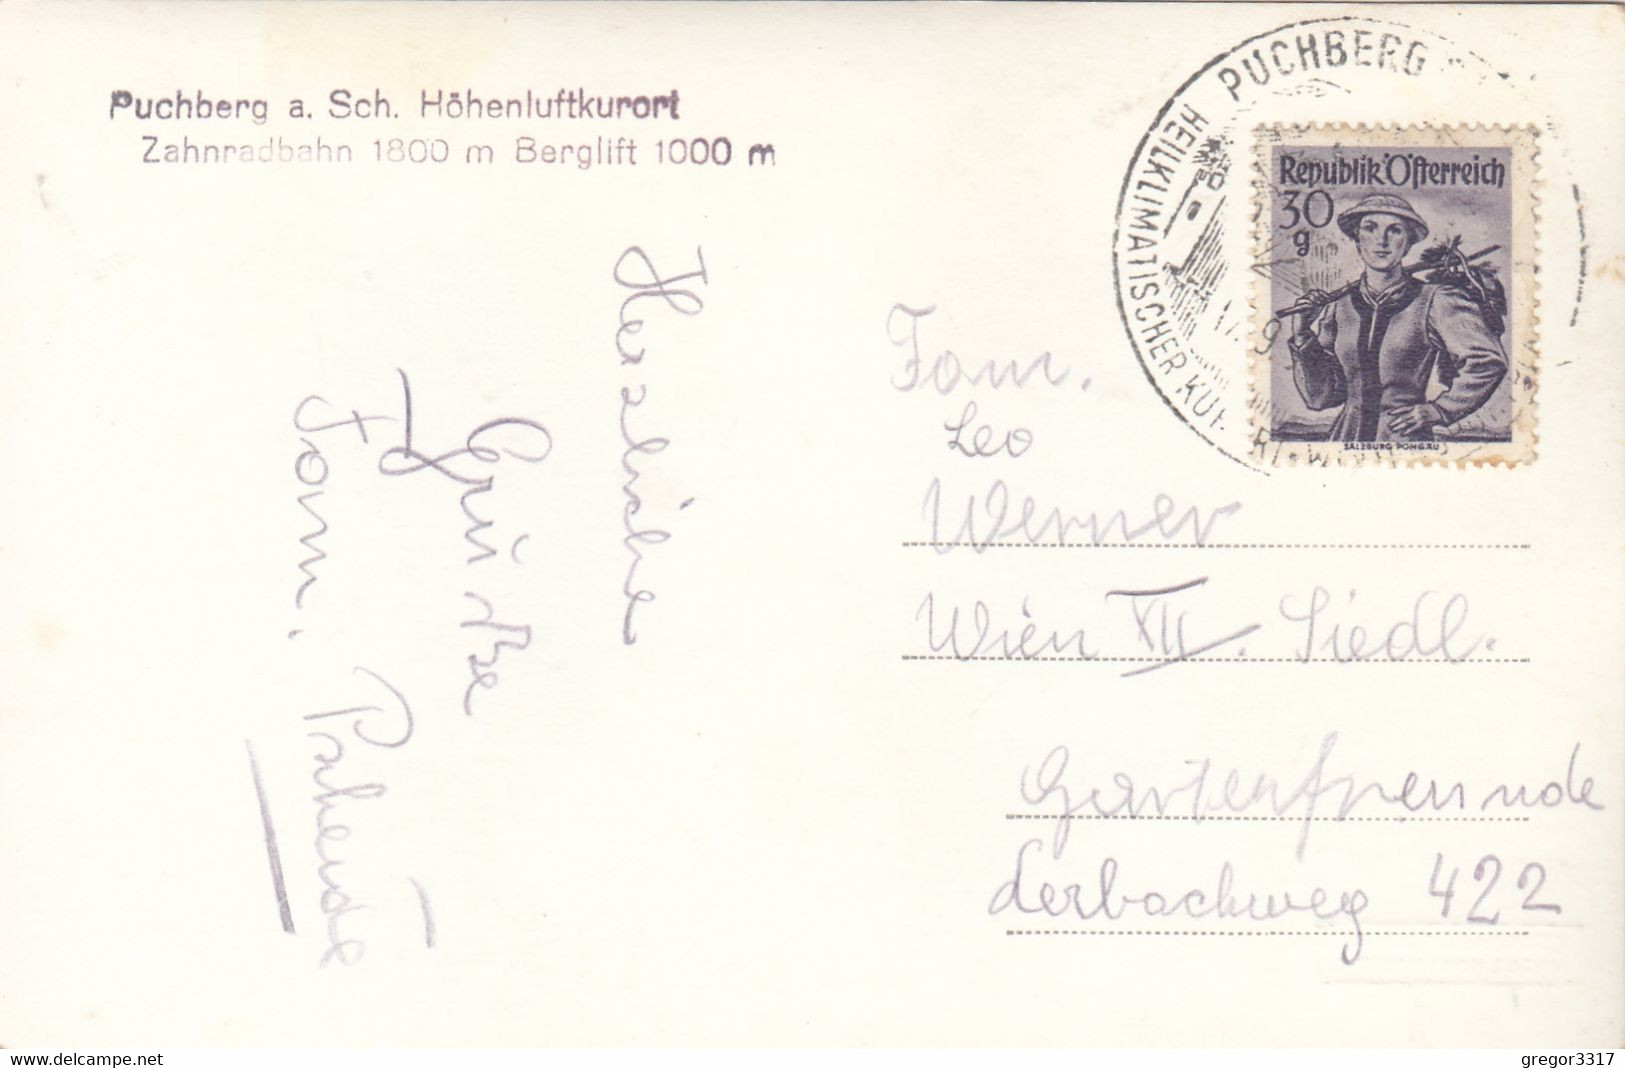 Puchberg a. Sch. Höhenluftkurort
Zahnradbahn 1800 m Berglift 1000 m
PUCHBERG
HEILKLIMATISCHER KUR
Republik Österreich
30
g
SALZBURG PONGAU
Herzliche
Grüße
Fam.
Fam.
Leo
Werner
Wien XII. Siedl.
Gartenfreunde
422
www.delcampe.net
gregor3317